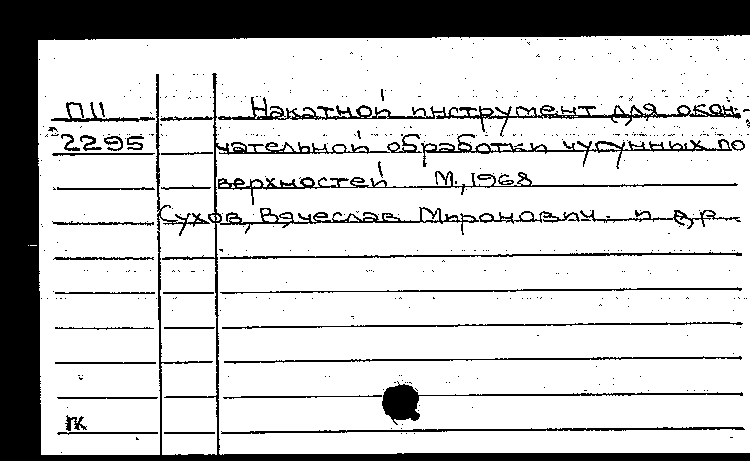 П11 Накатной инструмент для окон-
2295 чательной обработки чугунных по
верхностей М., 1968
Сухов, Вячеслав Миронович. и др.
ПК